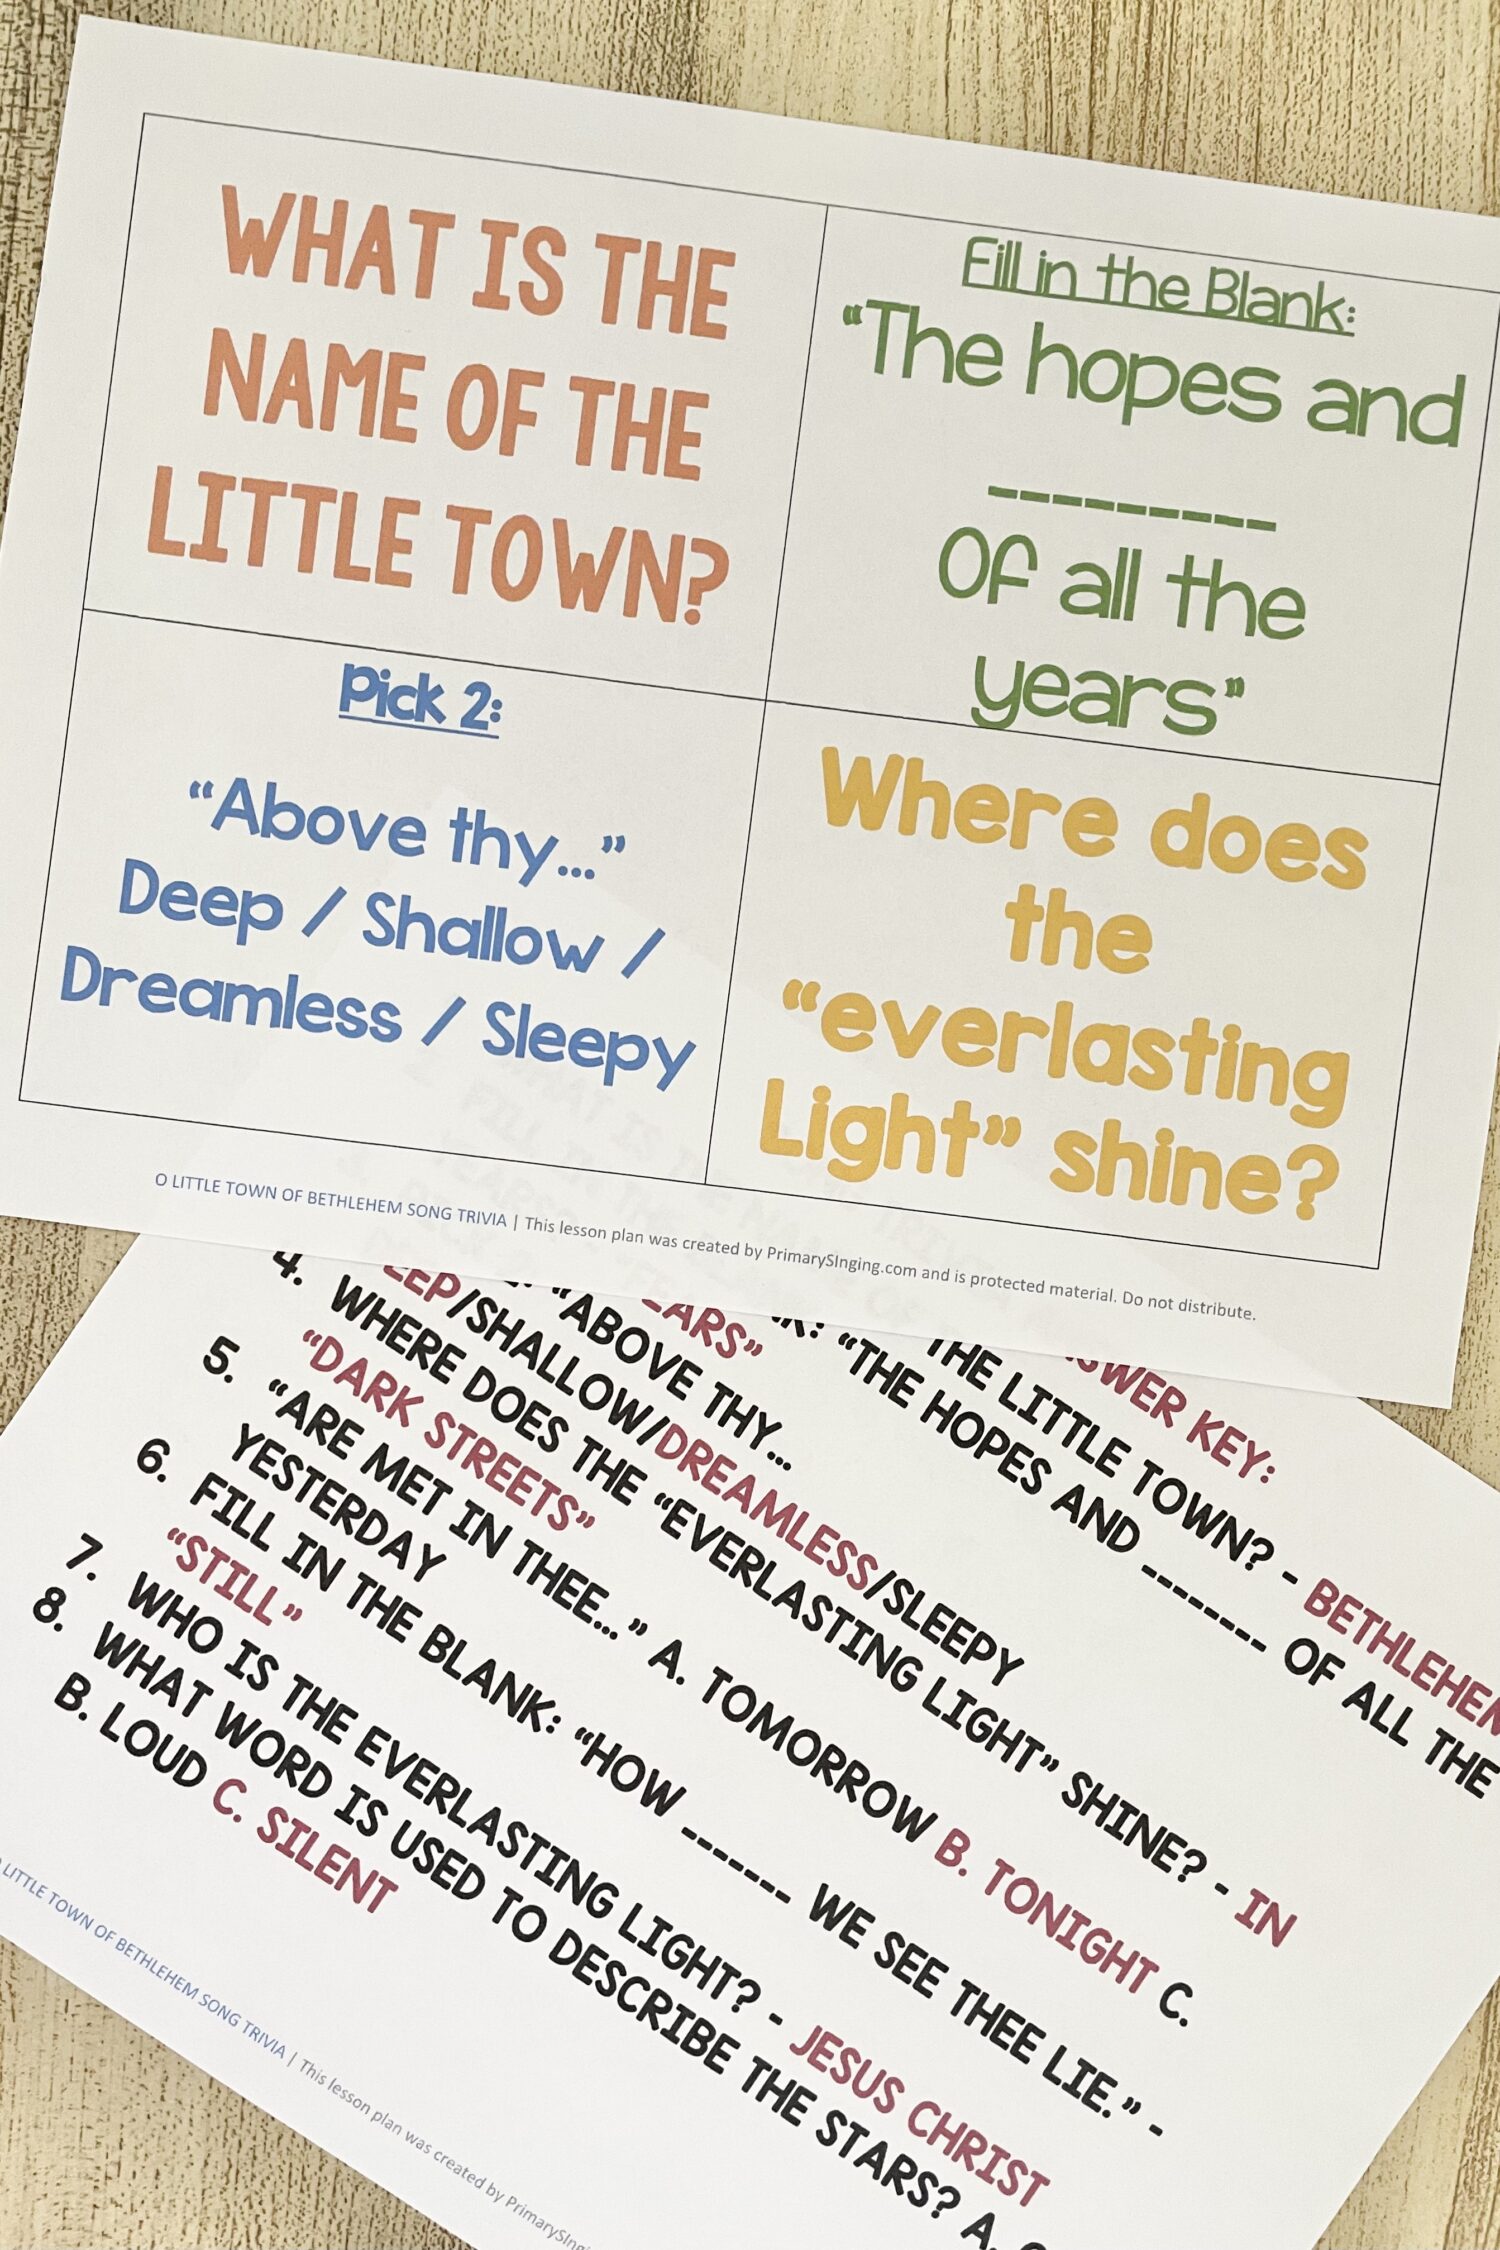 WHAT IS THE
NAME OF THE
LITTLE TOWN?
Fill in the Blank:
“The hopes and
_________
Of all the
years”
Pick 2:
“Above thy...”
Deep / Shallow /
Dreamless / Sleepy
Where does
the
“everlasting
Light” shine?
O LITTLE TOWN OF BETHLEHEM SONG TRIVIA | This lesson plan was created by PrimarySInging.com and is protected material. Do not distribute.
KEY:
THE LITTLE TOWN? - BETHLEHEM
“THE HOPES AND _______ OF ALL THE
“ABOVE THY...
/SHALLOW/DREAMLESS/SLEEPY
4. WHERE DOES THE “EVERLASTING LIGHT” SHINE? - IN
“DARK STREETS”
5. “ARE MET IN THEE...” A. TOMORROW B. TONIGHT C.
YESTERDAY
6. FILL IN THE BLANK: “HOW ______ WE SEE THEE LIE.” -
“STILL”
7. WHO IS THE EVERLASTING LIGHT? - JESUS CHRIST
8. WHAT WORD IS USED TO DESCRIBE THE STARS? A.
B. LOUD C. SILENT
LITTLE TOWN OF BETHLEHEM SONG TRIVIA | This lesson plan was created by